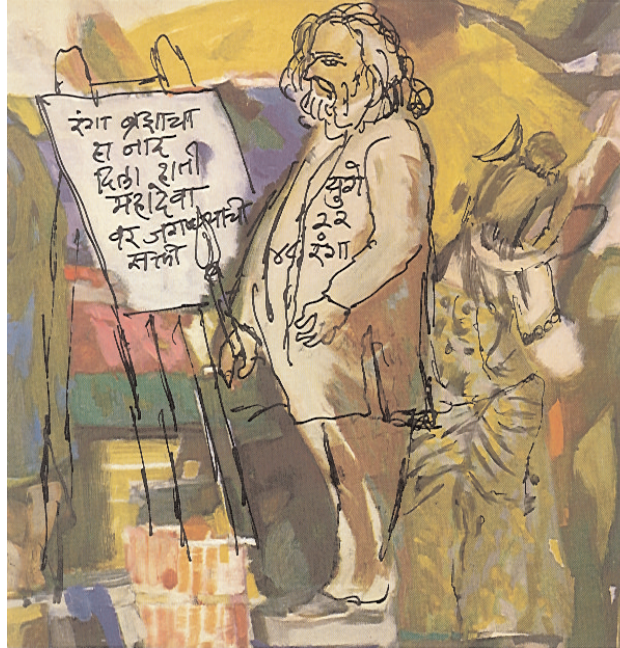 रंगा ब्रह्माचा
हा नाद
दिला हाती
महादेवा
वर जगण्याची
सक्ती
युगे
२२
४८ रंगा